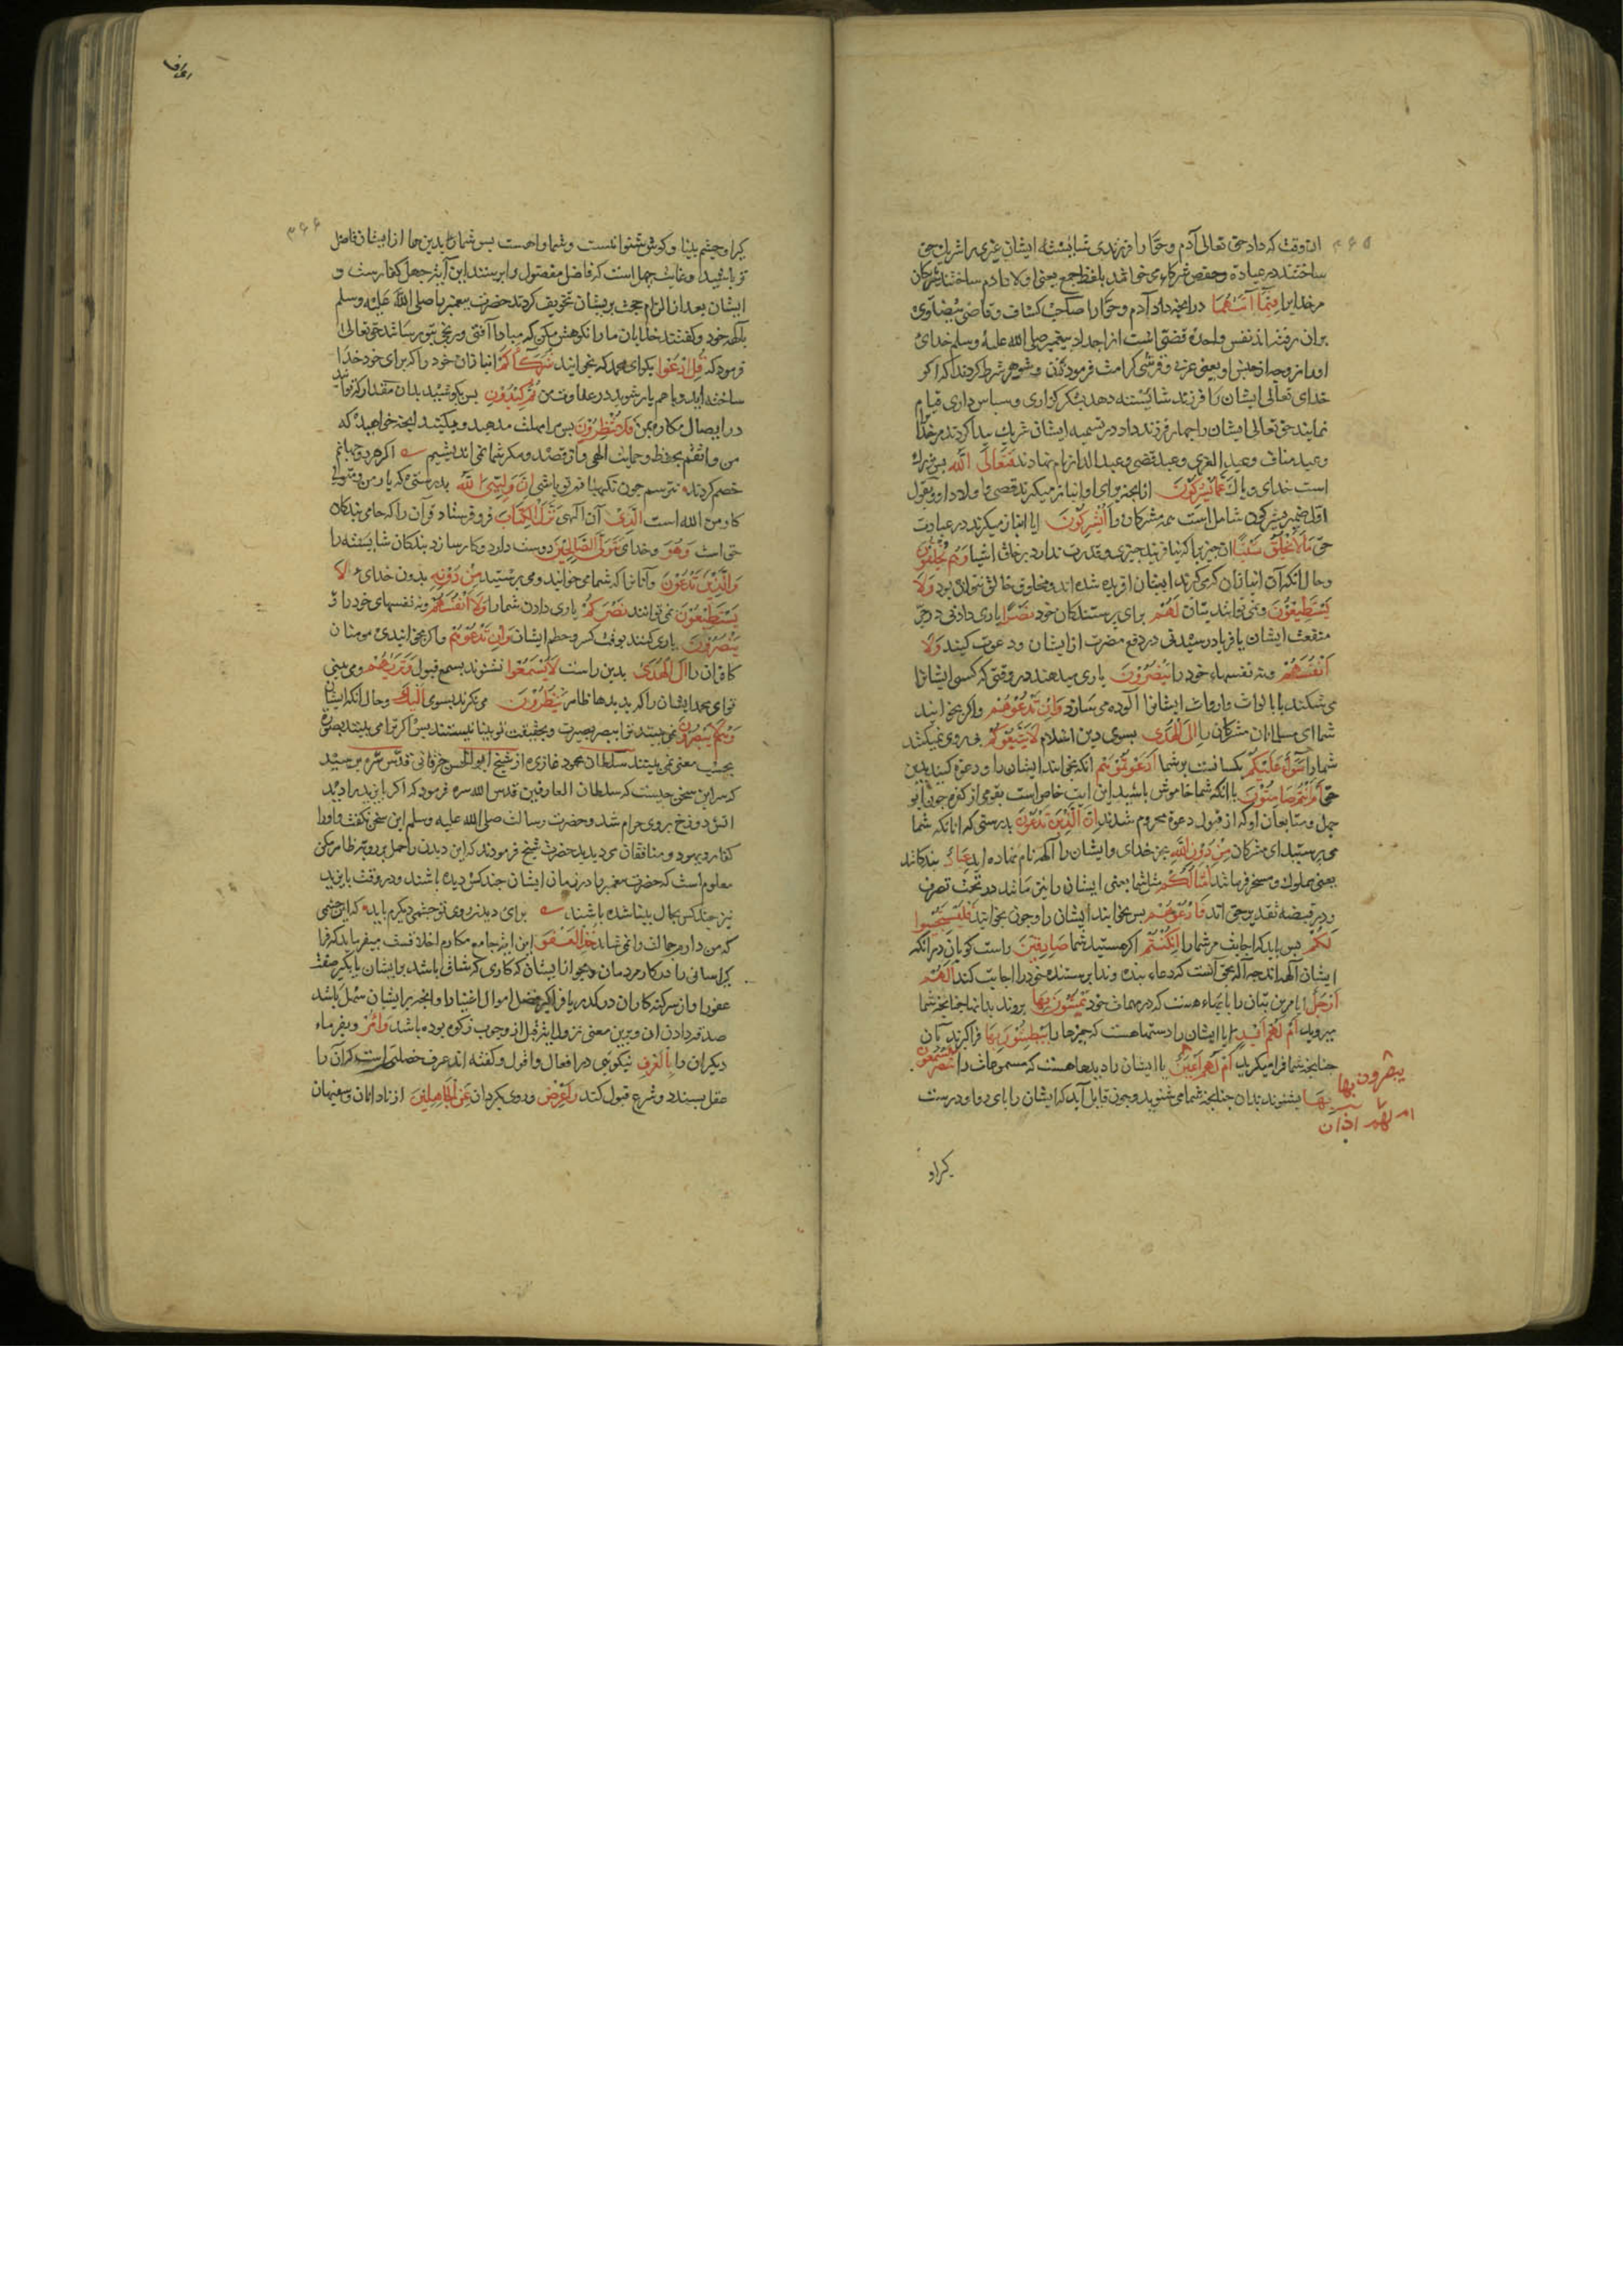 ۳۶۵
ان وقت که داد حق تعالی آدم و حوا را فرزندی شایسته ایشان غیری را شریک حق
ساختند در عبادة و حفص شرکاء می خواند بلفظ جمع یعنی اولاد آدم ساختند شرکان
مر خدایرا فِیمَا آتَیٰهُمَا در آنچه داد آدم و حوا را صاحب کشاف و قاضی بیضاوی
بران رفته اند نفس واحده قصی است از اجداد پیغمبر صلی الله علیه وسلم خدای
او را زوجه از جنس او یعنی عربی و قرشی کرامت فرمود زن و شوهر شرط کردند که اکر
خدای تعالی ایشان را فرزند شایسته دهد بشکر کزاری و سپاس داری قیام
نمایند حق تعالی ایشان را چهار فرزند داد در تسمیه ایشان شریک پیدا کردند مر خدا را
و عبد مناف و عبد العزی و عبد قصی و عبد الدار نام نهادند فَتَعَالَی اللَّه پس بزرک
است خدای و پاک عَمَّا یُشْرِکُونَ از آنچه برای او انباز میکیرند قصی و اولاد او و بقول
اول ضمیر یشرکون شامل است همه مشرکان را أَیُشْرِکُونَ ایا انباز میکیرند در عبادت
حق مَا لَا یَخْلُقُ شَیْئًا ان چیز را که نیافریند چیزی و قدرت ندارد بر خلق اشیا وَهُمْ یُخْلَقُونَ
و حال انکه آن انبازان که می کیرند ایشان افریده شده اند و مخلوق خالق نتواند بود وَلَا
یَسْتَطِیعُونَ و نمی توانند بتان لَهُمْ برای پرستندکان خود نَصْرًا یاری دادنی در جر
منفعت ایشان یا فریاد رسیدنی در دفع مضرت از ایشان و دعوت کنند وَلَا
أَنْفُسَهُمْ و نه نفسهاء خود را یَنْصُرُونَ یاری میدهند در وقتی که کسی ایشانرا
می شکند یا بالواث و ارواث ایشانرا آلوده می سازد وَإِنْ تَدْعُوهُمْ و اکر بخوانید
شما ای مسلمانان مشرکان را إِلَی الْهُدَی بسوی دین اسلام لَا یَتَّبِعُوکُمْ پی روی نمیکنند
شما را سَوَاءٌ عَلَیْکُمْ یکسانست بر شما أَدَعَوْتُمُوهُمْ انکه بخوانید ایشان را و دعوة کنید بدین
حق أَمْ أَنْتُمْ صَامِتُونَ یا انکه شما خاموش باشید این ایت خاص است بقومی از کفره چون ابو
جهل و متابعان او که از قبول دعوة محروم شدند إِنَّ الَّذِینَ تَدْعُونَ بدرستی که انانکه شما
می پرستید ای مشرکان مِنْ دُونِ اللَّهِ بجز خدای و ایشان را آلهه نام نهاده اید عِبَادٌ بندکانند
یعنی مملوک و مسخر فرمانند أَمْثَالُکُمْ مثل شما یعنی ایشان را نیز مانند در تحت تصرف
و در قبضه تقدیر حق اند فَادْعُوهُمْ پس بخوانید ایشان را و چون بخوانید فَلْیَسْتَجِیبُوا
لَکُمْ پس باید که اجابت مر شما را إِنْ کُنْتُمْ اکر هستید شما صَادِقِینَ راست کویان در انکه
ایشان آلهه اند چه آله بحق آنست که دعاء بنده و ندا پرستنده خود را اجابت کند أَلَهُمْ
أَرْجُلٌ ایا مر این بتان را پایهاء هست که در مهمات خود یَمْشُونَ بِهَا بروند بدانها چنانچه شما
میروید أَمْ لَهُمْ أَیْدٍ ایا ایشان را دستها هست که چیزها را یَبْطِشُونَ بِهَا فرا کیرند بآن
چنانچه شما فرا میکیرید أَمْ لَهُمْ أَعْیُنٌ یا ایشان را دیدها هست که مسموعات را یَسْمَعُونَ
بِهَا بشنوند بدان چنانچه شما می شنوید و چون قابل آید که ایشان را پای روا و دست
یبصرون بها
ام لهم آذان
کیراو
اعراف
۳۶۶
کیرا و چشم بینا و کوش شنوا نیست و شما را هست پس شما را بدین ها از ایشان فاضل
تر باشید و غایت جهل است که فاضل مفضول را پرستند این آیت جهل کفار است و
ایشان بعد از الزام حجت بر یشان تخویف کردند حضرت پیغمبر را صلی الله علیه وسلم
بآلهه خود و کفتند خدایان ما را نکوهش مکن که مبادا آفتی و رنجی بتو رسانند حق تعالی
فرمود که قُلِ ادْعُوا بکو ای محمد که بخوانید شُرَکَاءَکُمْ انبازان خود را که برای خود خدا
ساخته اید و با هم یار شوید در عداوت من ثُمَّ کِیدُونِ پس بکوشید بدان مقدار که توانید
در ایصال مکاره بمن فَلَا تُنْظِرُونِ پس مرا مهلت مدهید و میکنید انچه خواهید که
من واثقم بحفظ و حمایت الهی و از قصد و مکر شما نمی اندیشم
خصم کردند نترسم چون نکهبانم تو باشی إِنَّ وَلِیِّیَ اللَّهُ بدرستی که یار من و متولی
کار من الله است الَّذِی آن الهی نَزَّلَ الْکِتَابَ فرو فرستاد قرآن را که حامی بندکان
حق است وَهُوَ و خدای یَتَوَلَّی الصَّالِحِینَ دوست دارد و کار سازد بندکان شایسته را
وَالَّذِینَ تَدْعُونَ و آنانرا که شما می خوانید و می پرستید مِنْ دُونِهِ بدون خدای لَا
یَسْتَطِیعُونَ نمی توانند نَصْرَکُمْ یاری دادن شما را وَلَا أَنْفُسَهُمْ و نه نفسهای خود را
یَنْصُرُونَ یاری کنند بوقت کسر و حطم ایشان وَإِنْ تَدْعُوهُمْ و اکر بخوانید ای مومنان
کافران را إِلَی الْهُدَی بدین راست لَا یَسْمَعُوا نشنوند بسمع قبول وَتَرَاهُمْ و می بینی
تو ای محمد ایشان را که بدیدهاء ظاهر یَنْظُرُونَ می نکرند بسوی إِلَیْکَ و حال انکه ایشان
وَهُمْ لَا یُبْصِرُونَ نمی بینند ترا ببصر بصیرت و بحقیقت تو بینا نیستند پس اکر ترا می بینند بصورت
بحسب معنی نمی بینند سلطان محمود غازی از شیخ ابو الحسن خرقانی قدس سره پرسید
که سر این سخن چیست که سلطان العارفین قدس الله سره فرمود که اکر بایزید را دیدند
اتش دوزخ بر وی حرام شد و حضرت رسالت صلی الله علیه وسلم این سخن نکفت و او را
کفار و یهود و منافقان می دیدند حضرت شیخ فرمودند که این دیدن را حمل بر رویة ظاهر مکن
معلوم است که حضرت پیغمبر را در زمان ایشان چند کس دیده باشند و در وقت بایزید
نیز چند کس بجمال بینا شده باشند برای دیدن روی تو چشمی دیکرم باید که این چشمی
که من دارم جمالت را نمی شاید خُذِ الْعَفْوَ این ایت جامع مکارم اخلاقست میفرماید که فرا
کیر اسانی را در کار مردمان و مجو از ایشان کاری که شاق باشد بر ایشان یا بکیر صفت
عفو را و از سر کنه کاران درکذر یا فراکیر فضل اموال اغنیا را و انچه بر ایشان سهل باشد
صدقه دادن ان و برین معنی نزول ایت قبل از وجوب زکوة بوده باشد وَأْمُرْ و بفرمای
دیکران را بِالْعُرْفِ نیکویی در افعال و اقوال و کفته اند عرف خصلتی است که آن را
عقل پسندد و شرع قبول کند وَأَعْرِضْ و روی بکردان عَنِ الْجَاهِلِینَ از نادانان و سفیهان